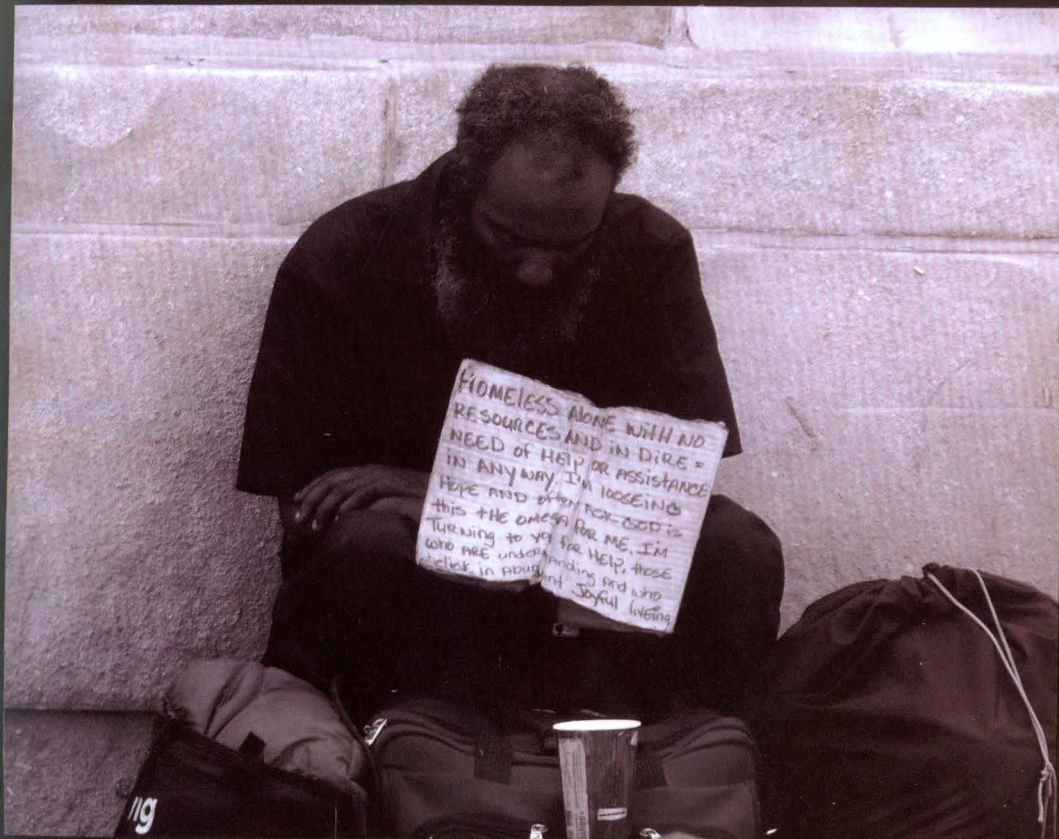 HOMELESS ALONE WITH NO
RESOURCES AND IN DIRE =
NEED OF HELP OR ASSISTANCE
IN ANY WAY. I'M LOOSEING
HOPE AND often ASK GOD is
this tHE OMEGA FOR ME. I'M
TURNING to yo FOR HELP, those
who ARE understanding and who
beliek in Abundant Joyful liveing
ng